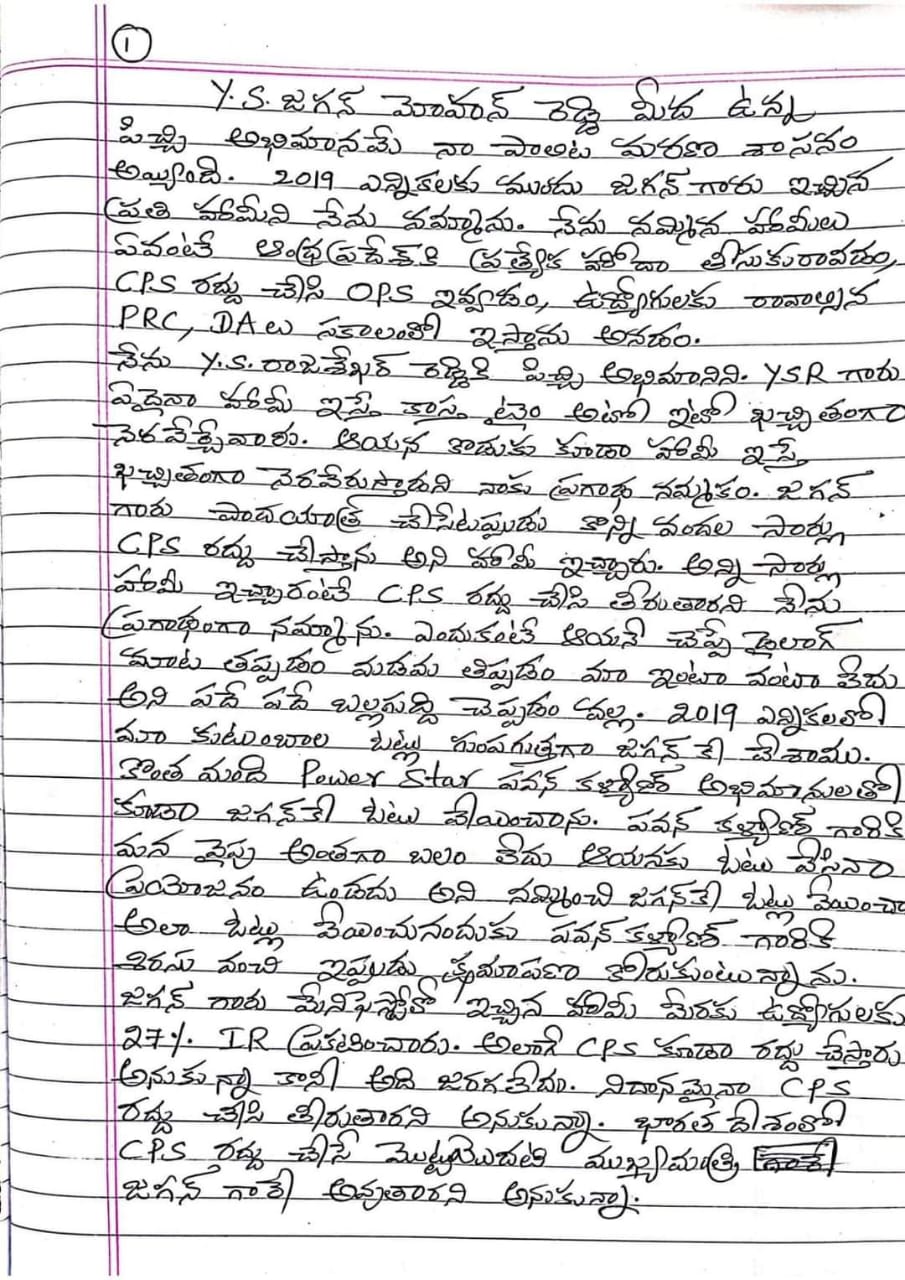 1
Y.S. జగన్ మోహన్ రెడ్డి మీద ఉన్న
పిచ్చి అభిమానమే నా పాలిట మరణ శాసనం
అయ్యింది. 2019 ఎన్నికలకు ముందు జగన్ గారు ఇచ్చిన
ప్రతి హామీని నేను నమ్మాను. నేను నమ్మిన హామీలు
ఏవంటే ఆంధ్రప్రదేశ్‌కి ప్రత్యేక హోదా తీసుకురావడం,
CPS రద్దు చేసి OPS ఇవ్వడం, ఉద్యోగులకు రావాల్సిన
PRC, DAలు సకాలంలో ఇస్తాను అనడం.
నేను Y.S. రాజశేఖర్ రెడ్డికి పిచ్చి అభిమానిని. YSR గారు
ఏదైనా హామీ ఇస్తే కాస్త టైం అటో ఇటో ఖచ్చితంగా
నెరవేర్చేవారు. ఆయన కొడుకు కూడా హామీ ఇస్తే
ఖచ్చితంగా నెరవేరుస్తాడని నాకు ప్రగాఢ నమ్మకం. జగన్
గారు పాదయాత్ర చేసేటప్పుడు కొన్ని వందల సార్లు
CPS రద్దు చేస్తాను అని హామీ ఇచ్చారు. అన్ని సార్లు
హామీ ఇచ్చారంటే CPS రద్దు చేసి తీరుతారని నేను
ప్రగాఢంగా నమ్మాను. ఎందుకంటే ఆయనే చెప్పే డైలాగ్
మాట తప్పడం మడమ తిప్పడం మా ఇంటా వంటా లేదు
అని పదే పదే బల్లగుద్ది చెప్పడం వల్ల. 2019 ఎన్నికలలో
మా కుటుంబాల ఓట్లు గుంపగుత్తగా జగన్‌కే వేశాము.
కొంత మంది Power Star పవన్ కళ్యాణ్ అభిమానులతో
కూడా జగన్‌కే ఓటు వేయించాను. పవన్ కళ్యాణ్ గారికి
మన వైపు అంతగా బలం లేదు ఆయనకు ఓటు వేసినా
ప్రయోజనం ఉండదు అని నమ్మించి జగన్‌కే ఓట్లు వేయించా
అలా ఓట్లు వేయించినందుకు పవన్ కళ్యాణ్ గారికి
శిరసు వంచి ఇప్పుడు క్షమాపణ కోరుకుంటున్నాను.
జగన్ గారు మేనిఫెస్టోలో ఇచ్చిన హామీ మేరకు ఉద్యోగులకు
27% IR ప్రకటించారు. అలాగే CPS కూడా రద్దు చేస్తారు
అనుకున్నా కానీ అది జరగలేదు. నిదానమైనా CPS
రద్దు చేసి తీరుతారని అనుకున్నా. భారత దేశంలో
CPS రద్దు చేసే మొట్టమొదటి ముఖ్యమంత్రి
జగన్ గారే అవుతారని అనుకున్నా.